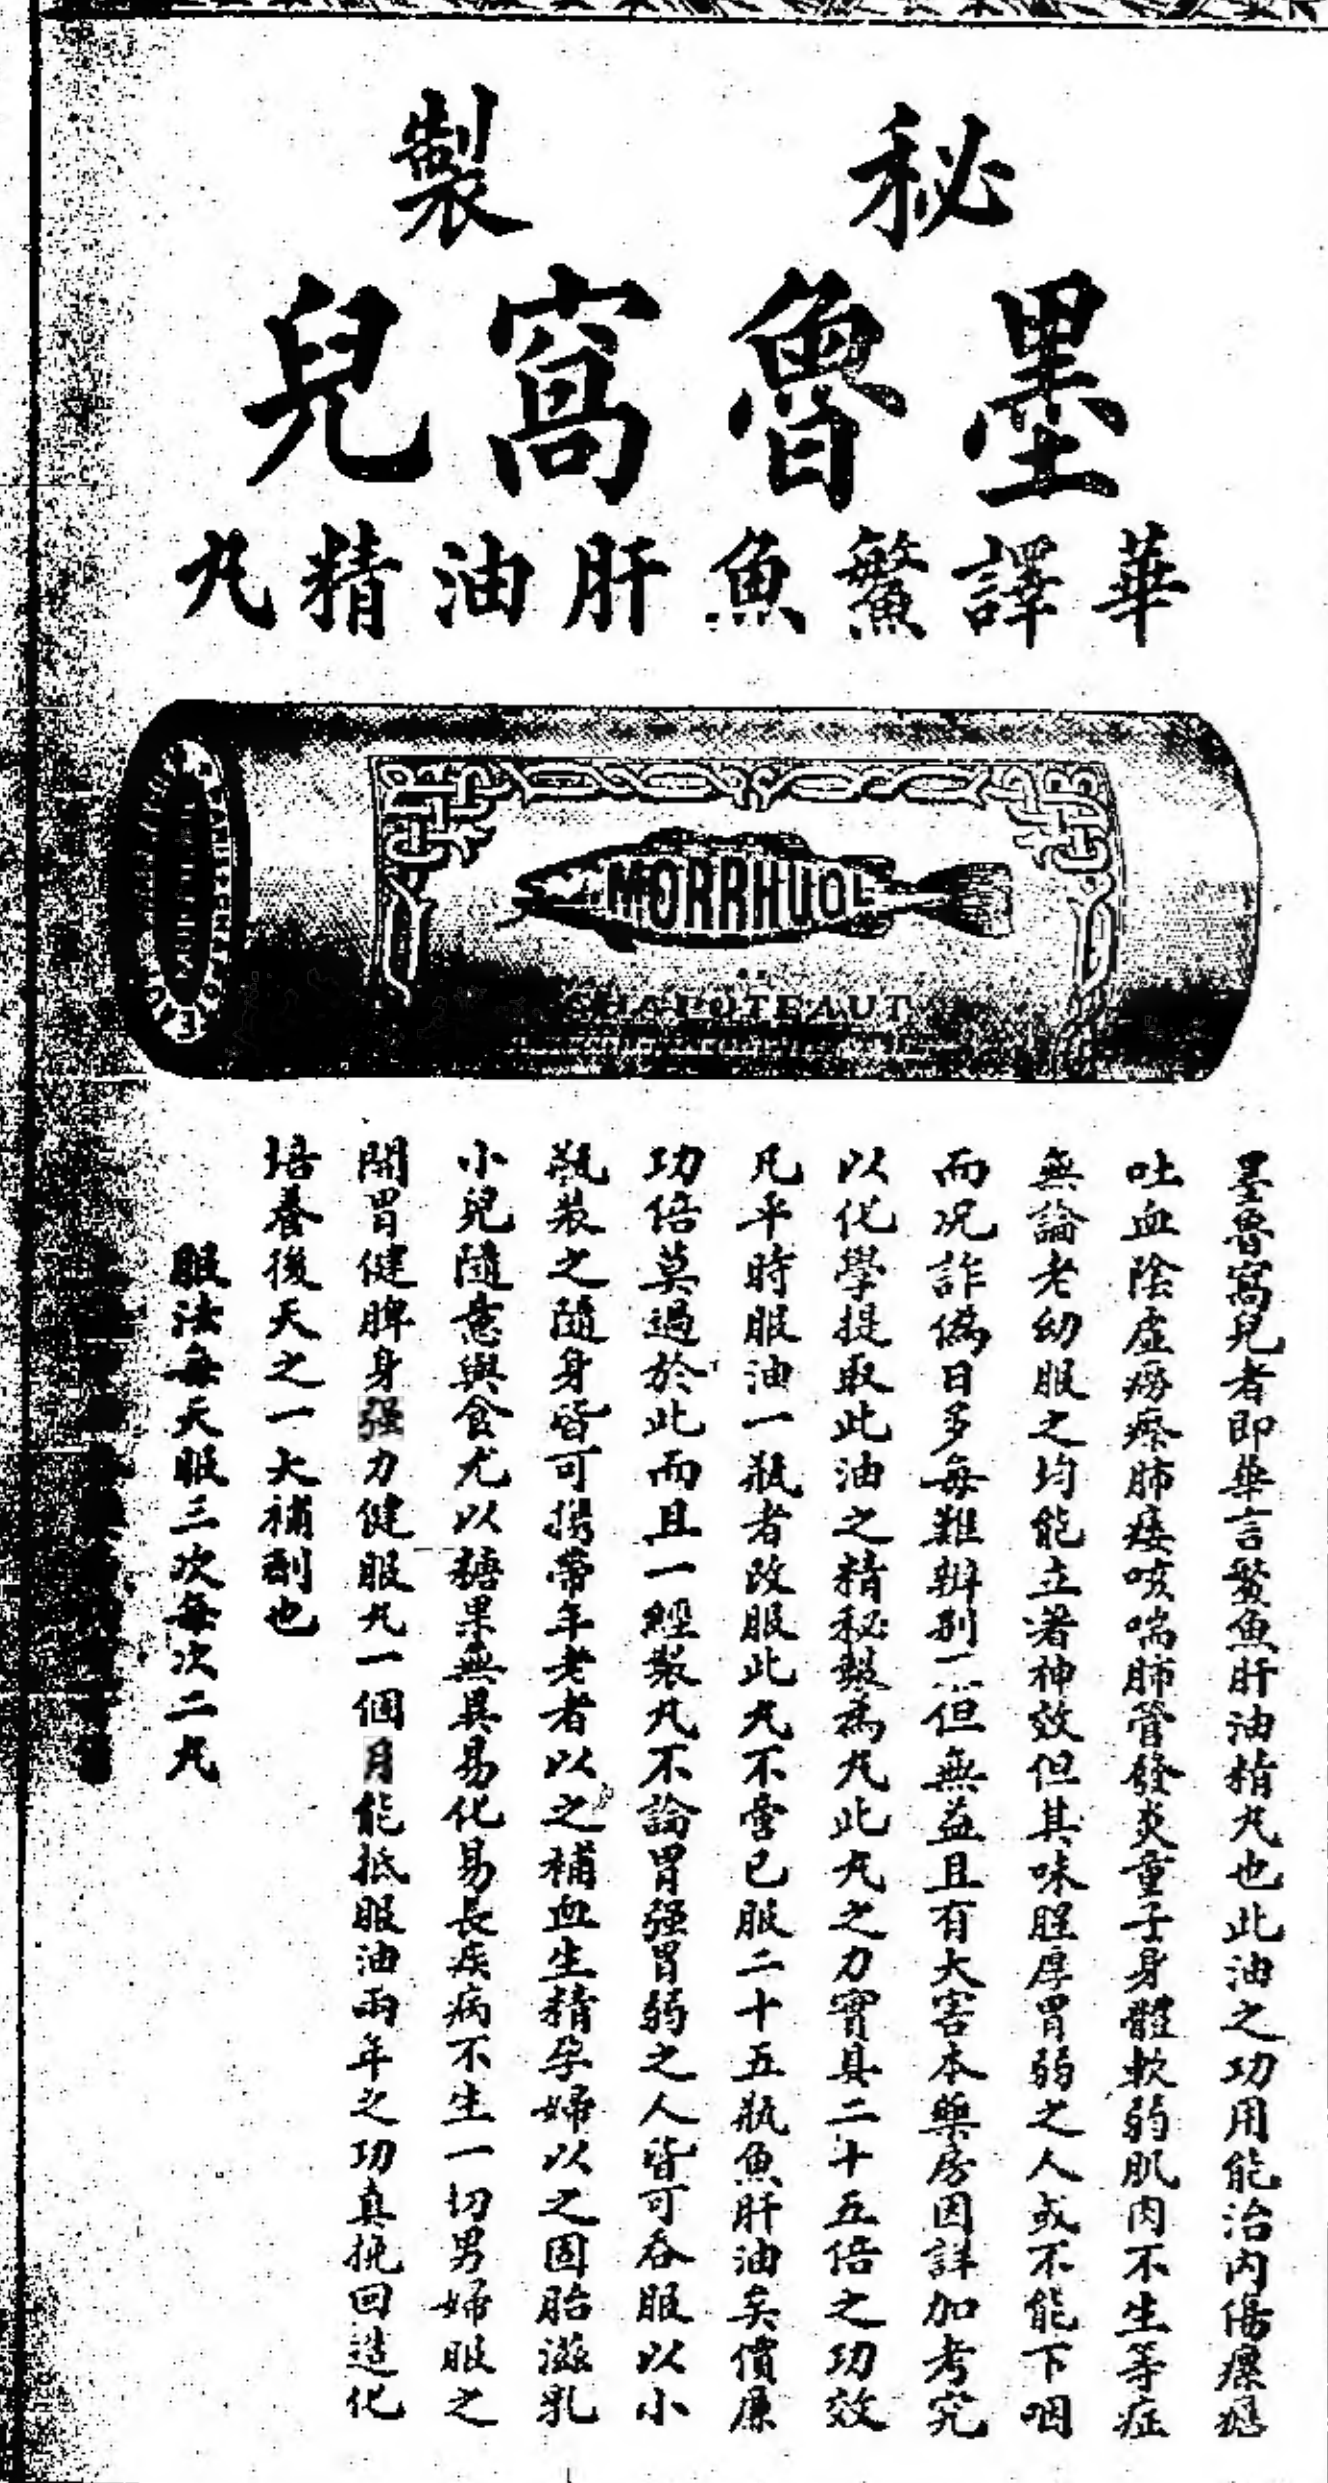 秘製
墨魯窩兒
華譯鱉魚肝油精丸
MORRHUOL
CHAPOTEAUT
墨魯窩兒者即華言鱉魚肝油精丸也此油之功用能治內傷瘰癧
吐血陰虛癆瘵肺痿咳喘肺管發炎童子身體軟弱肌肉不生等症
無論老幼服之均能立著神效但其味腥厚胃弱之人或不能下咽
而况詐偽日多每難辨別不但無益且有大害本藥房因詳加考究
以化學提取此油之精秘製為丸此丸之力實具二十五倍之功效
凡平時服油一瓶者改服此丸不啻已服二十五瓶魚肝油矣價廉
功倍莫過於此而且一經製丸不論胃强胃弱之人皆可吞服以小
瓶裝之隨身皆可攜帶年老者以之補血生精孕婦以之固胎滋乳
小兒隨意與食尤以糖果無異易化易長疾病不生一切男婦服之
開胃健脾身强力健服丸一個月能抵服油兩年之功真挽回造化
培養後天之一大補劑也
服法每天服三次每次二丸